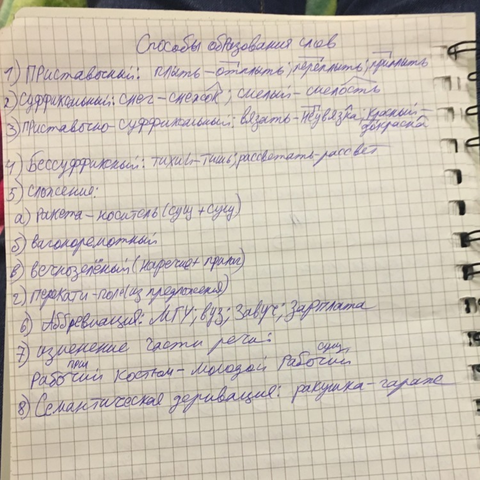 Способы образования слов
1) Приставочный: плыть – отплыть; переплыть; приплыть
2) Суффиксальный: снег – снежок; смелый – смелость
3) Приставочно-суффиксальный: вязать – неувязка, красный –
докрасна
4) Бессуффиксный: тихий – тишь; рассветать – рассвет
5) Сложение:
а) Ракета – носитель (сущ + сущ)
б) вагоноремонтный
в) вечнозелёный (наречие + прилаг)
г) перекати – поле (из предложения)
6) Аббревиация: МГУ; вуз; Завуч; Зарплата
7) изменение части речи:
прил сущ
Рабочий костюм – молодой Рабочий
8) Семантическая деривация: ракушка – гараж